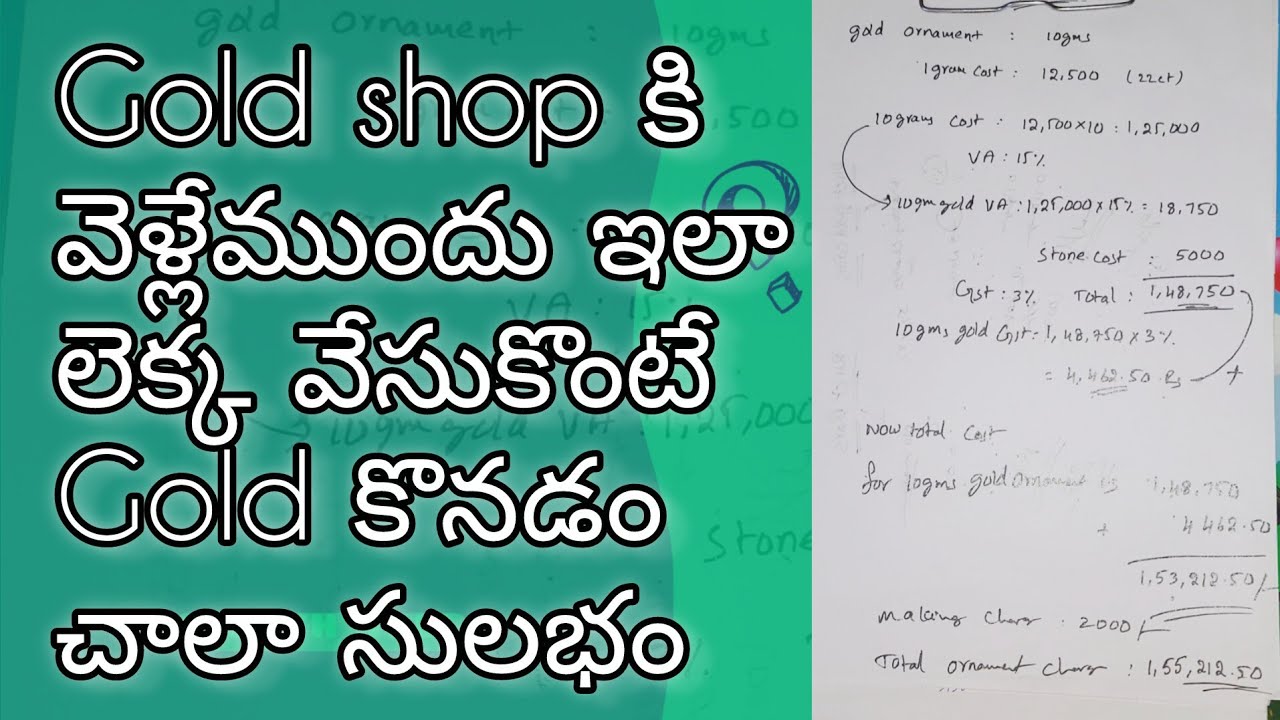 Gold shop కి
వెళ్లేముందు ఇలా
లెక్క వేసుకొంటే
Gold కొనడం
చాలా సులభం
gold ornament : 10gms
1gram cost : 12,500 (22ct)
10grams cost : 12,500x10 : 1,25,000
VA : 15%
10gm gold VA : 1,25,000 x 15% = 18,750
Stone cost : 5000
Gst : 3% Total : 1,48,750
10gms gold Gst : 1,48,750 x 3%
= 4,462.50 Rs +
Now total cost
for 10gms gold ornament is 1,48,750
+ 4462.50
1,53,212.50/-
making charg : 2000/-
Total ornament charg : 1,55,212.50